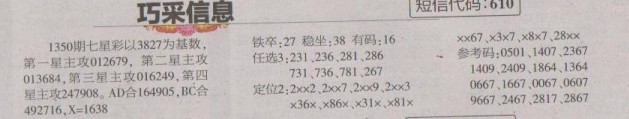 巧采信息
短信代码:610
1350期七星彩以3827为基数,
第一星主攻012679, 第二星主攻
013684,第三星主攻016249,第四
星主攻247908。AD合164905,BC合
492716,X=1638
铁卒:27 稳坐:38 有码:16
任选3:231、236、281、286
731、736、781、267
定位2:2xx2、2xx7、2xx9、2xx3
x36x、x86x、x31x、x81x
xx67、x3x7、x8x7、28xx
参考码:0501、1407、2367
1409、2409、1864、1364
0667、1667、0067、0607
9667、2467、2817、2867